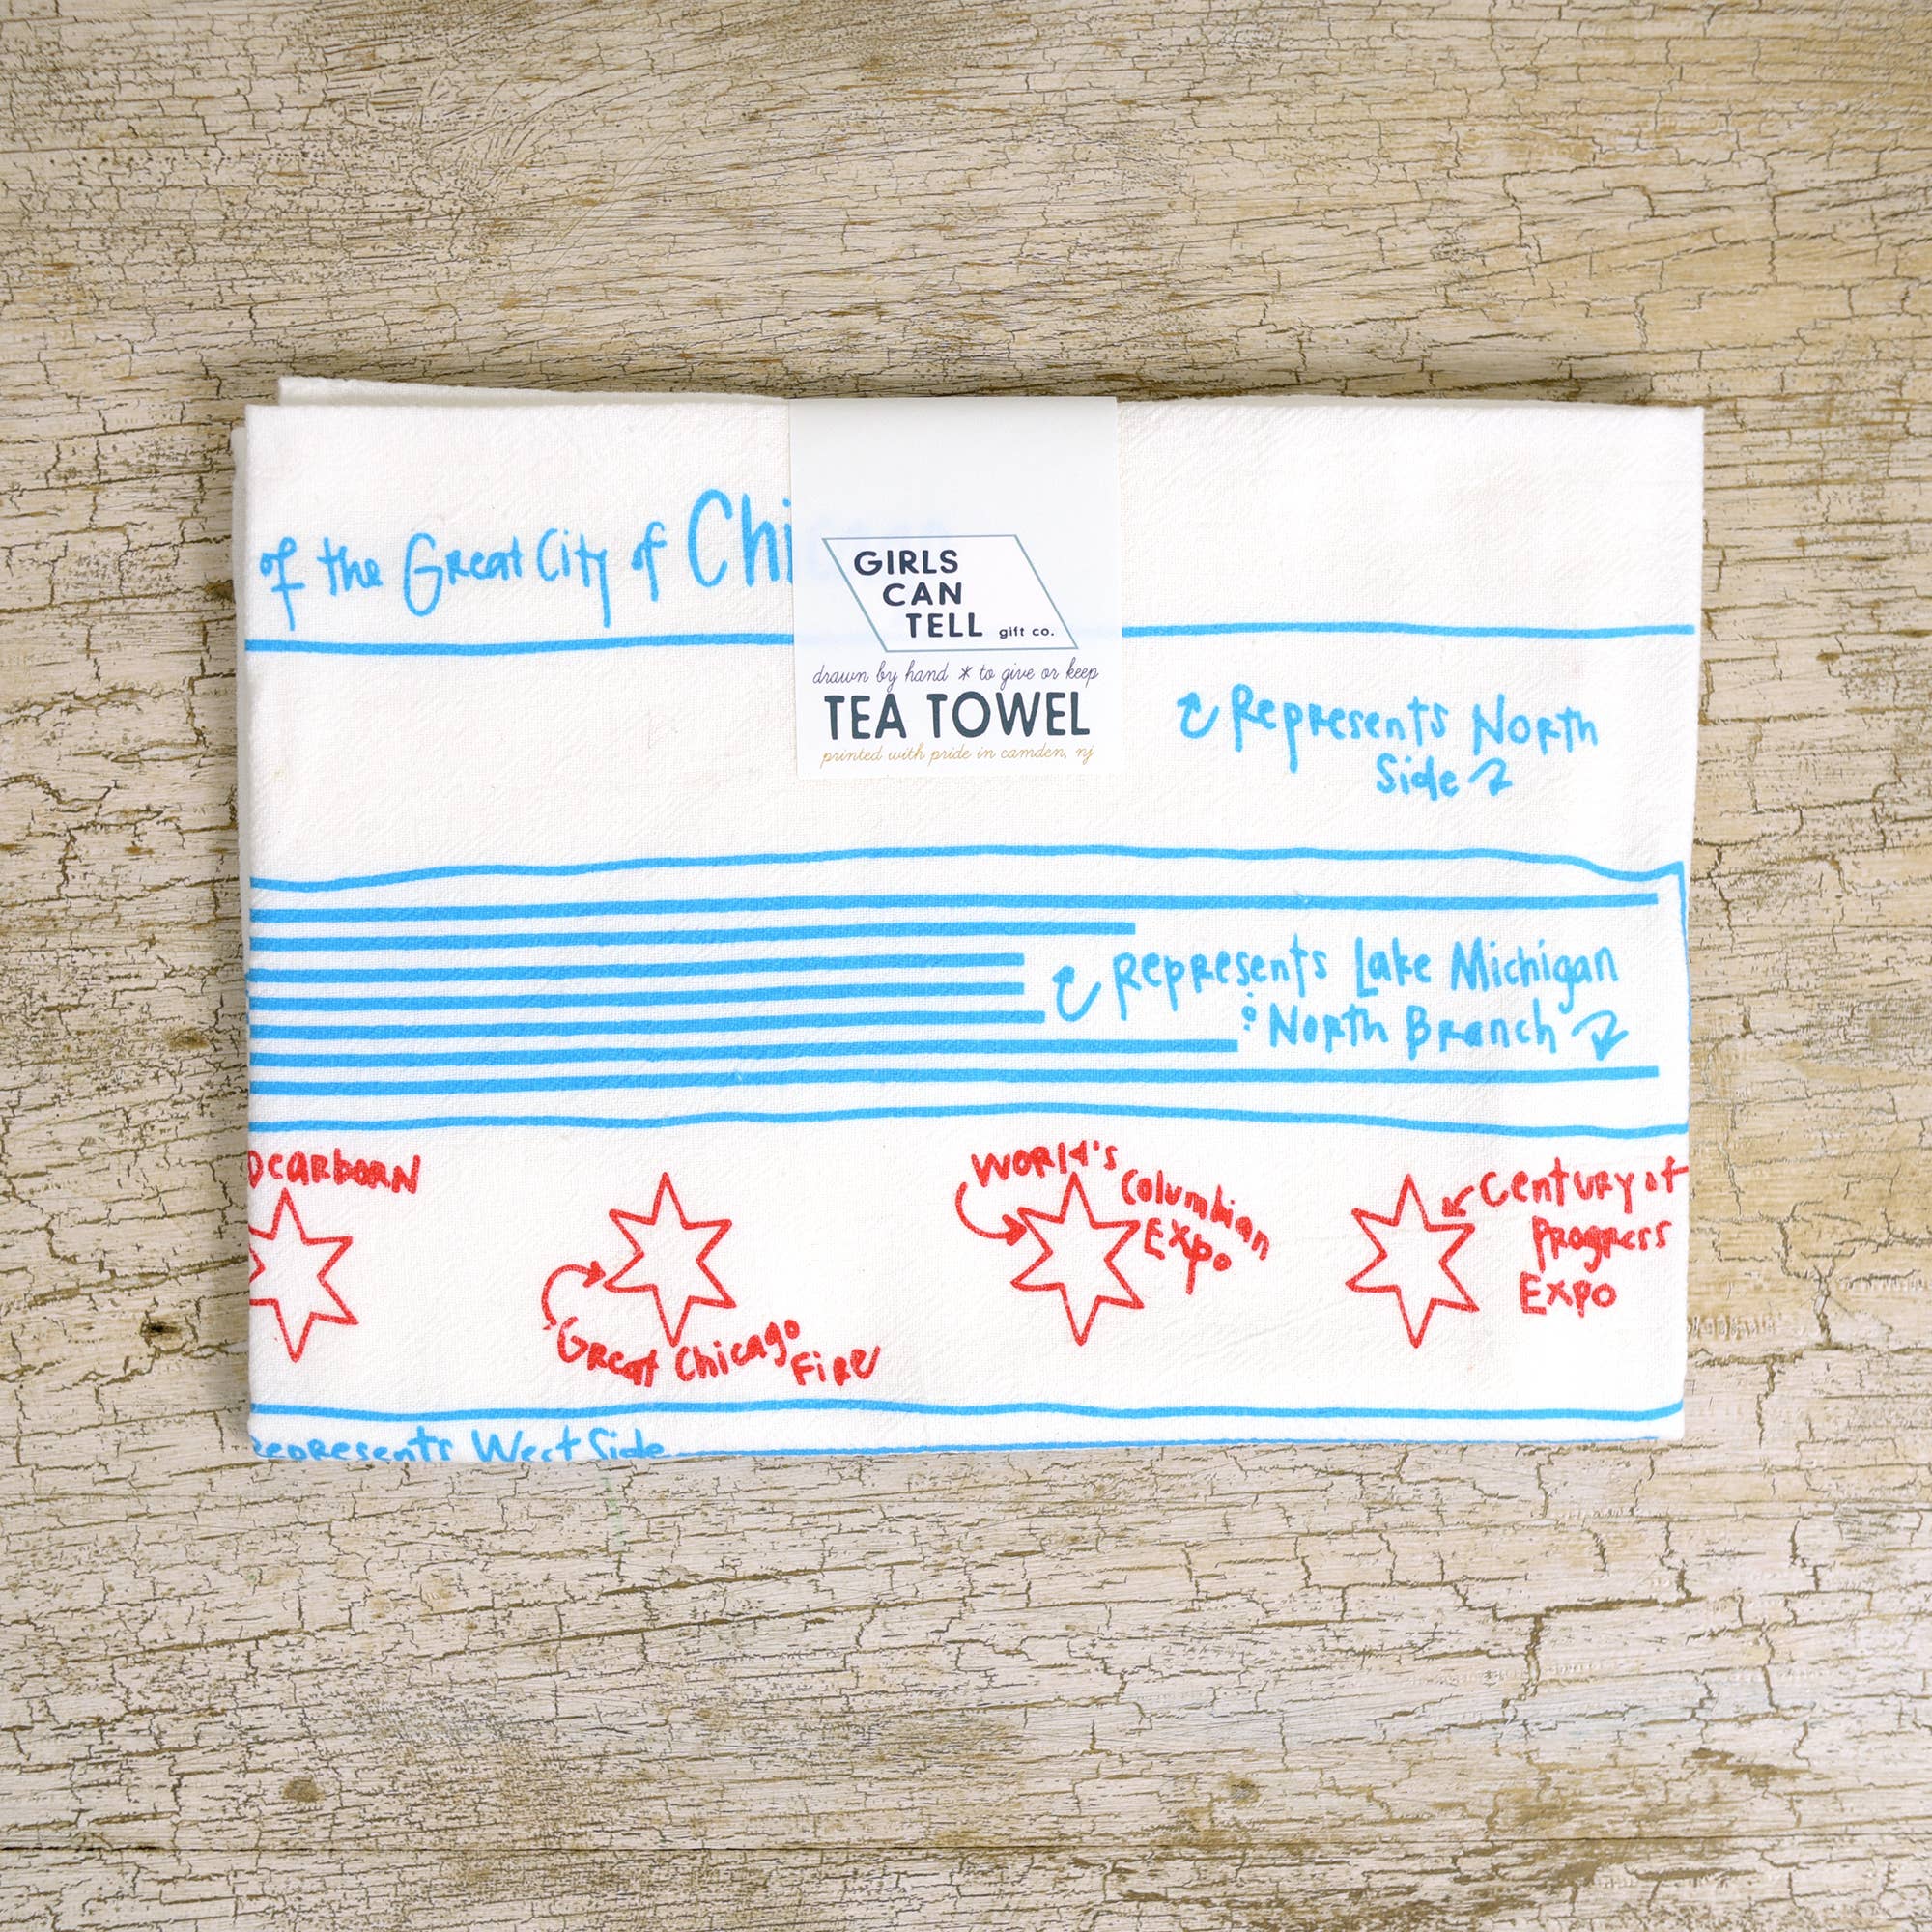 of the Great City of Chi
GIRLS
CAN
TELL gift co.
drawn by hand * to give or keep
TEA TOWEL
printed with pride in camden, nj
Represents North
Side
Represents Lake Michigan
& North Branch
Dearborn
Great Chicago Fire
World's Columbian
Expo
Century of
Progress
Expo
Represents West Side